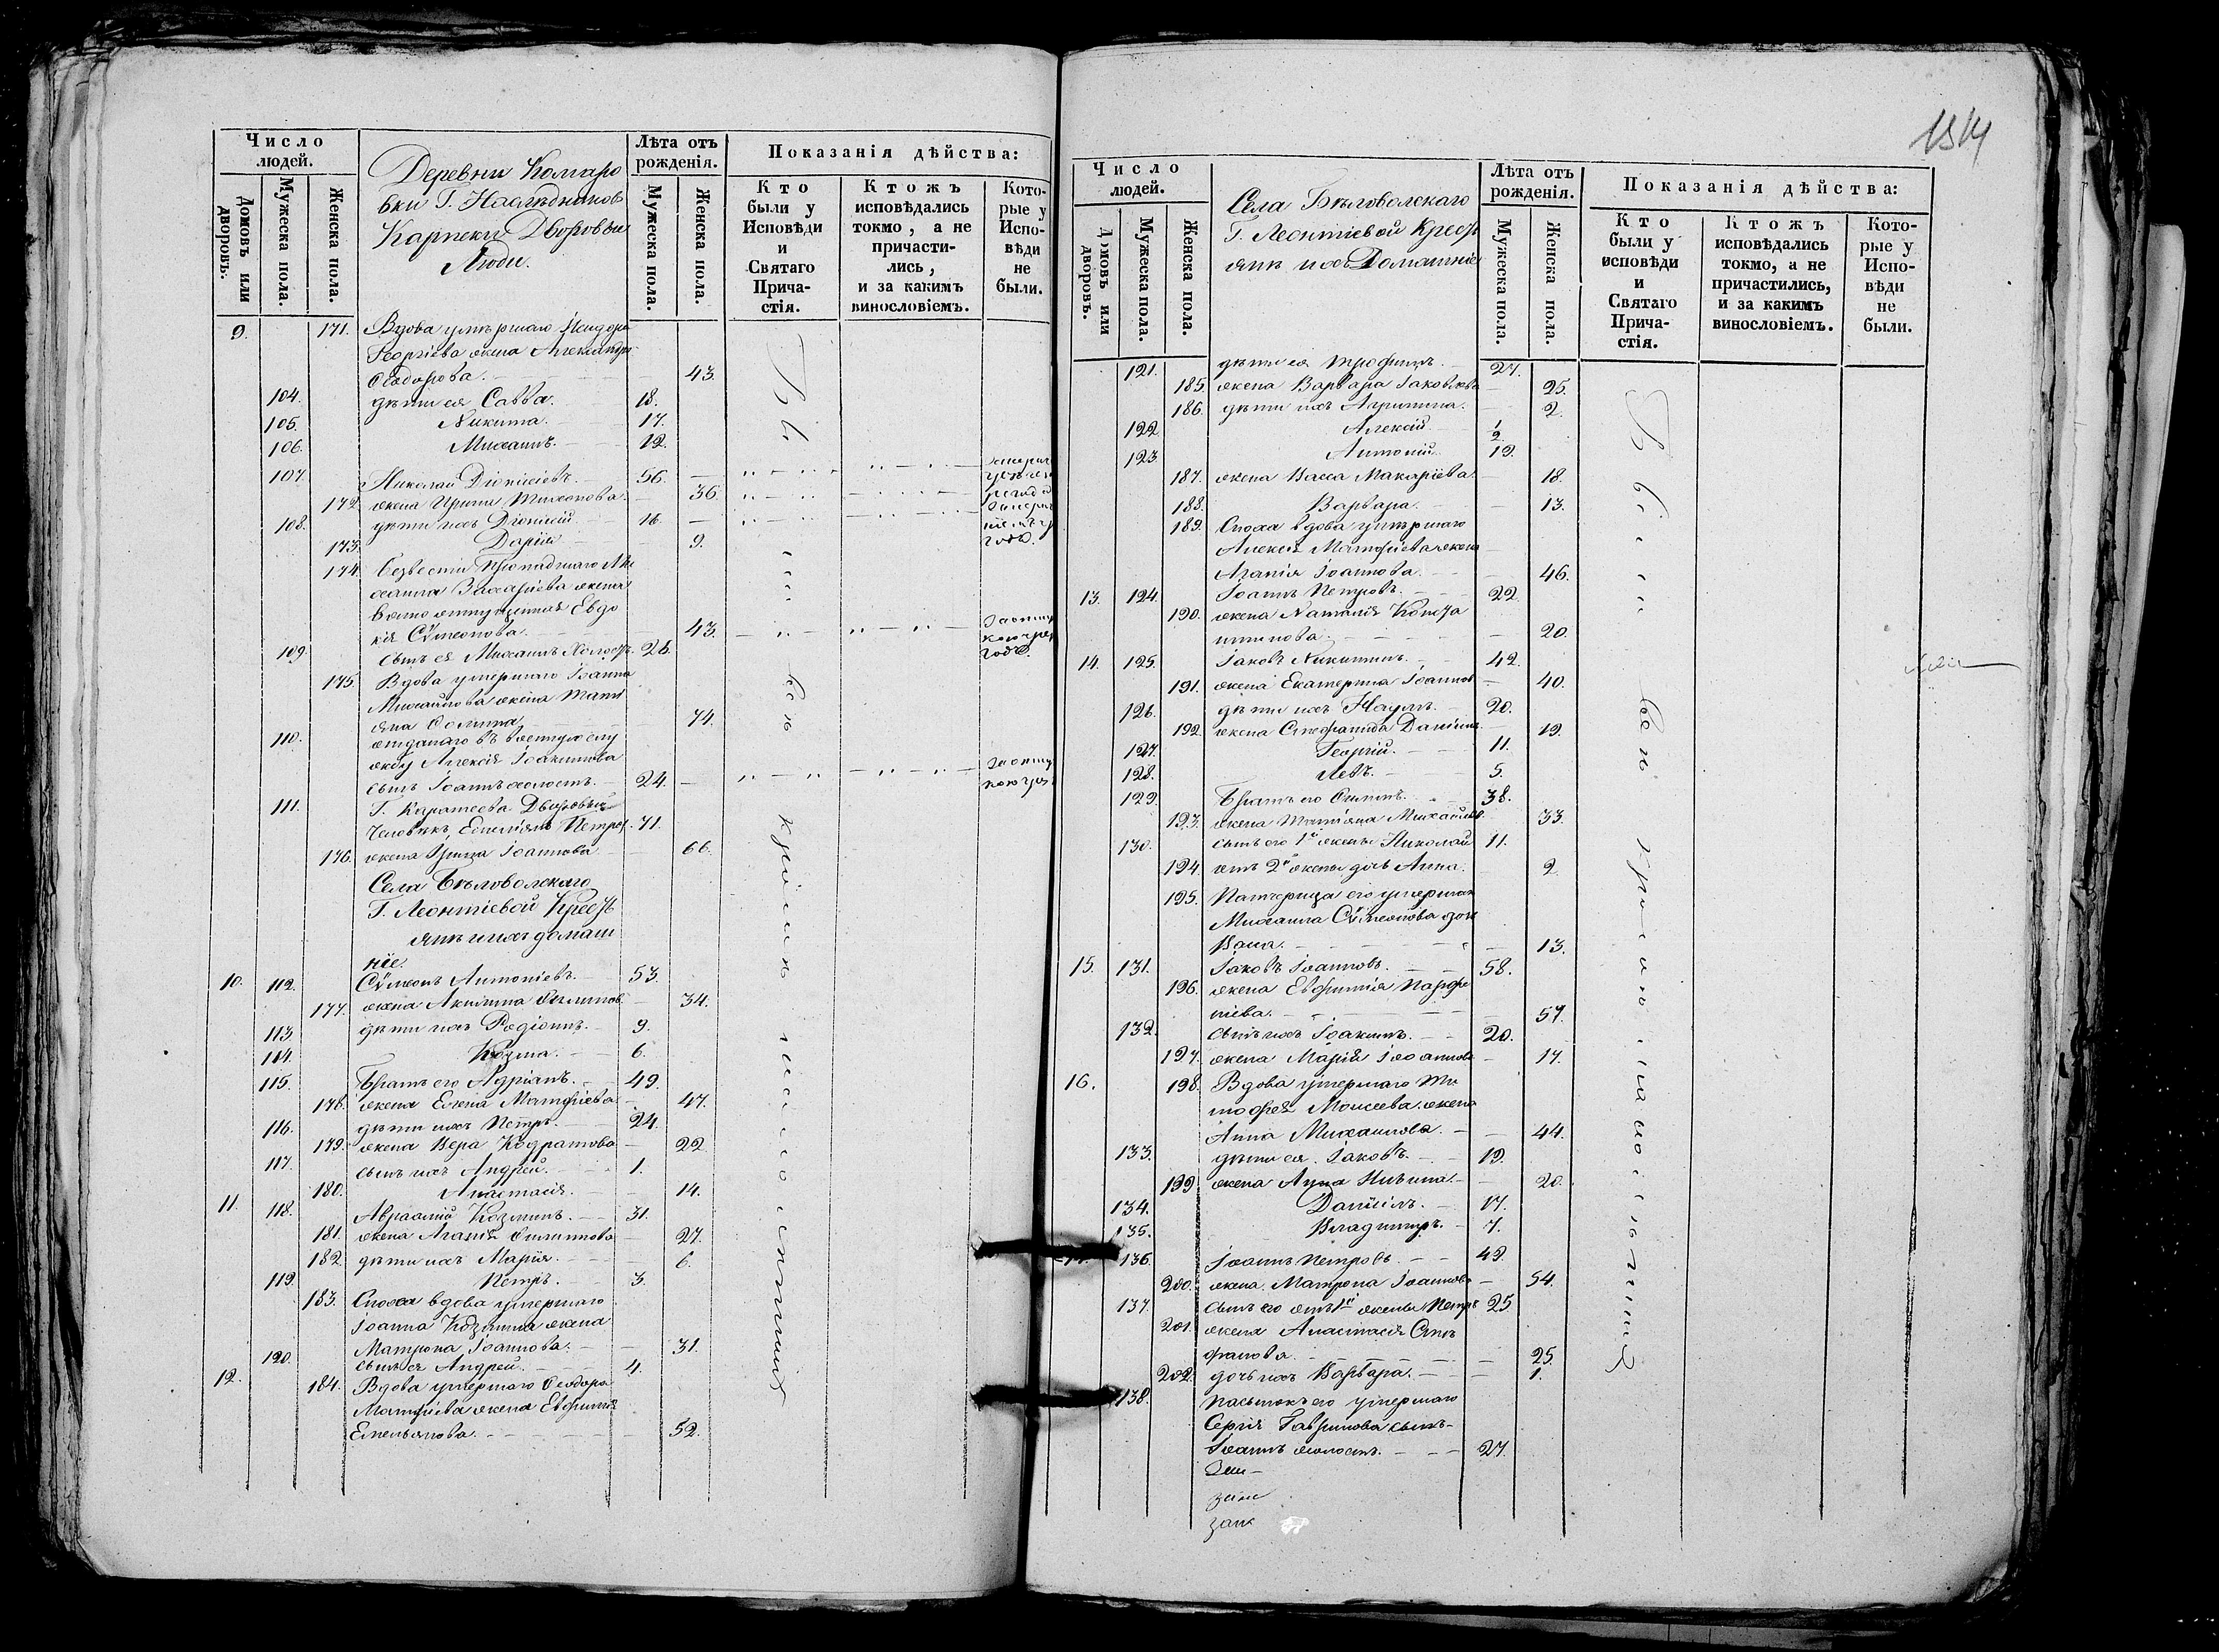 Число людей.
Домовъ или дворовъ.
Мужеска пола.
Женска пола.
Деревни Комаро
вки Г. Наслѣдниковъ
Карпеки Дворовыи
Люди.
Лѣта отъ рожденія.
Мужеска пола.
Женска пола.
Показанія дѣйства:
Кто были у Исповѣди и Святаго Прича- стія.
Ктожъ исповѣдались токмо, а не причасти- лись, и за какимъ винословіемъ.
Кото- рые у Испо- вѣди не были.
9. 171. Вдова умѣршаго Исидора
Георгіева жена Александра
Ѳеодорова. 43.
104. дѣти ея Савва. 18.
105. Никита. 17.
106. Михаилъ. 12.
107. Николай Діонисіевъ. 56.
172. жена Ирина Тихонова. 36.
108. дѣти ихъ Діонисій 16.
173. Дарія 9.
174. Безвести пропадшаго Ми
хаила Захаріева жена
вѣчно отпущенная Евдо
кія Сѵмеонова. 43.
109. сынъ ея Михаилъ Холостъ. 26.
175. Вдова умершаго Іоанна
Михайлова жена Тати
яна 74.
110. отданаго въ военную слу
жбу Алексія Іоакимова
сынъ Іоаннъ холостъ. 24.
111. Г. Каратеева Дворовый
Человѣкъ, Емиліянъ Петров. 71.
176. жена Ирина Іоаннова 66.
Села Бѣловолскаго
Г. Леонтіевой Крестъ
янѣ и ихъ домаш
ніе.
10. 112. Сѵмеонъ Антоніевъ. 53.
177. жена Акилина Филипов. 34.
113. дѣти ихъ Родіонъ. 9.
114. Козма. 6.
115. Братъ его Адріанъ. 49.
178. жена Елена Матфіева 47.
116. дѣти ихъ Петръ. 24.
179. жена Вера Кодратова 22
117. сынъ ихъ Андрей. 1.
180. Анастасія. 14.
11. 118. Авраамій Козминъ. 31.
181. жена Агапія Филиппова 27.
182. дѣти ихъ Марія. 6.
119. Петръ. 3.
183. Сноха вдова умершаго
Іоанна Козмина жена
Матрона Іоаннова. 31.
120. сынъ ея Андрей. 4.
12. 184. Вдова умершаго Ѳеодора
Матфіева жена Евфимія
Емельянова. 52.
1514
Число людей.
Домовъ или дворовъ.
Мужеска пола.
Женска пола.
Села Бѣловолскаго
Г. Леонтіевой Крестъ
янѣ и ихъ Домашніе
Лѣта отъ рожденія.
Мужеска пола.
Женска пола.
Показанія дѣйства:
Кто были у исповѣди и Святаго Прича- стія.
Ктожъ исповѣдались токмо, а не причастились, и за какимъ винословіемъ.
Кото- рые у Испо- вѣди не были.
121. дѣти ея Трофимъ. 27.
185. жена Варвара Іаковлева 25.
186. дѣти ихъ Агрипина. 2.
122 Алексій 1/2
123 Антоній. 19.
187. жена Васса Макаріева. 18.
188. Варвара. 13.
189. Сноха вдова умѣршаго
Алексія Матфіева жена
Агапія Іоаннова. 46.
13. 124. Іоаннъ Петровъ. 22.
190. жена Наталія Конста
нтинова. 20.
14. 125. Іаковъ Никитинъ. 42.
191. жена Екатерина Іоаннов 40.
126. дѣти ихъ Наумъ. 20.
192 жена Стефанида Даніил. 19.
127. Георгій. 11.
128. Левъ. 5.
129. Братъ его Филипъ. 38.
193. жена Татіяна Михайло. 33.
130. сынъ его 1й жены Николай 11.
194. отъ 2й жены дочь Анна. 2
195. Патчерица его умершаго
Михаила Сѵмеонова
13.
15. 131. Іаковъ Іоанновъ. 58.
196. жена Евфимія Парфе
ніева. 57.
132. сынъ ихъ Іоакимъ. 20.
197. жена Марія Іоаннова 17.
16. 198. Вдова умершаго Ти
мофея Моисеева жена
Анна Михаилова. 44.
133. дѣти ея Іаковъ. 19.
199 жена Анна 20.
134. Даніилъ. 17.
135. Владимиръ. 7.
136. Іоаннъ Петровъ 49.
200. жена Матрона Іоаннова 54.
137. сынъ его отъ 1й жены Петръ 25
201. жена Анастасія Сте
фанова. 25.
202. дочь ихъ Варвара. 1.
138. пасынокъ его умершаго
Сергія Гавриилова сынъ
Іоаннъ холостъ. 27.